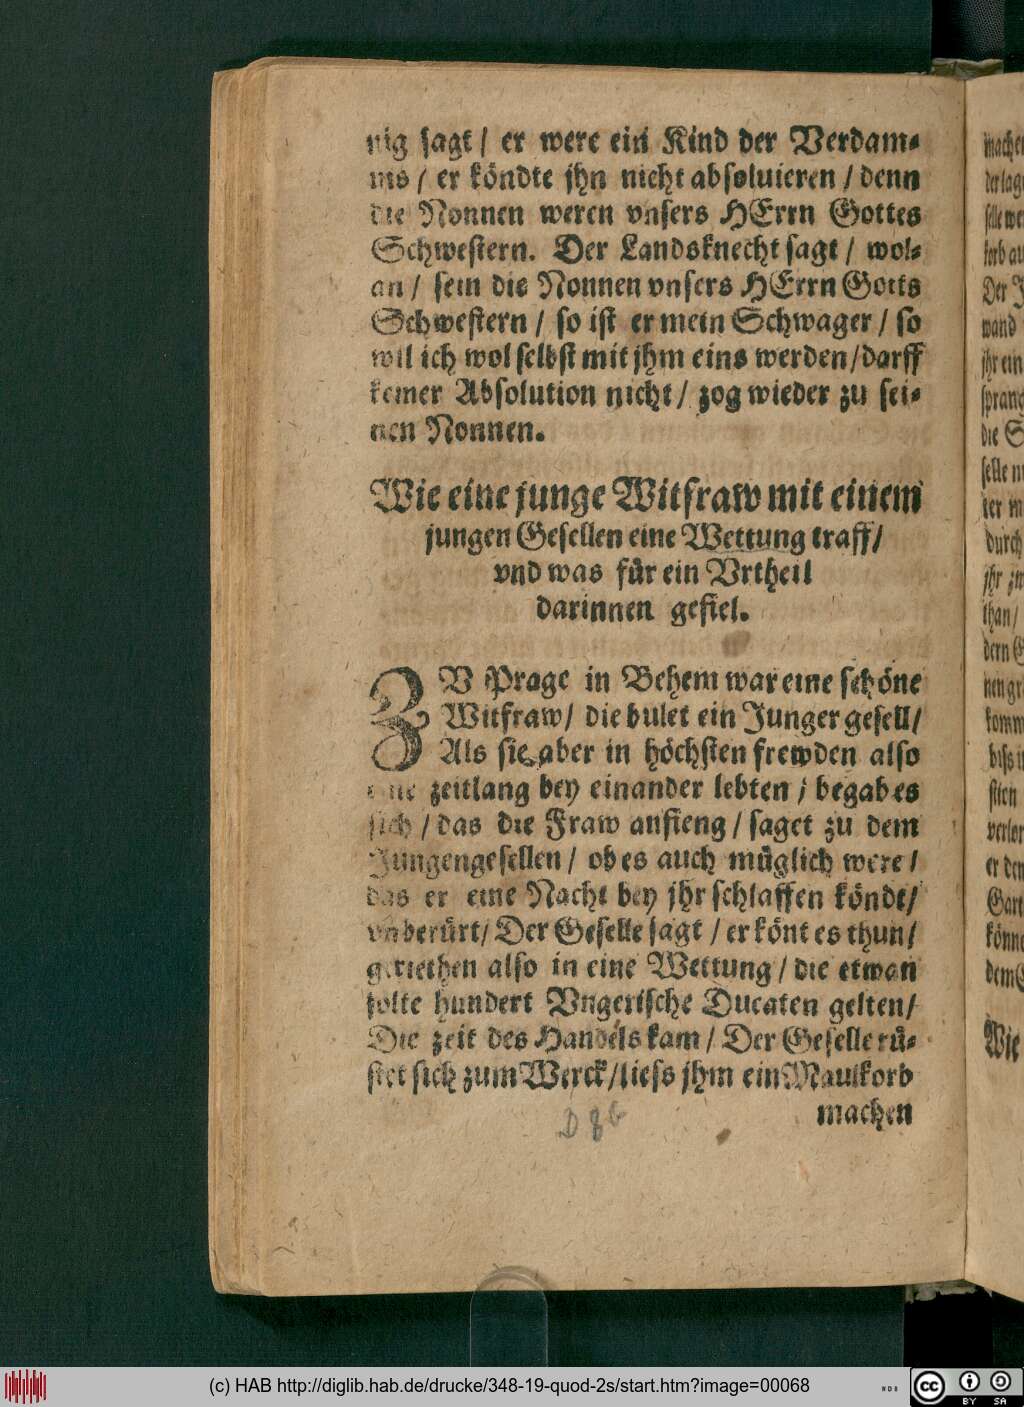 nig sagt / er were ein Kind der Verdam⸗
nis / er köndte jhn nicht absoluieren / denn
die Nonnen weren vnsers HErrn Gottes
Schwestern. Der Landsknecht sagt / wol⸗
an / sein die Nonnen vnsers HErrn Gotts
Schwestern / so ist er mein Schwager / so
wil ich wol selbst mit jhm eins werden / darff
keiner Absolution nicht / zog wieder zu sei⸗
nen Nonnen.
Wie eine junge Witfraw mit einem
jungen Gesellen eine Wettung traff /
vnd was für ein Vrtheil
darinnen gefiel.
ZV Prage in Behem war eine schöne
Witfraw / die bulet ein Junger gesell /
Als sie aber in höchsten frewden also
eine zeitlang bey einander lebten / begab es
sich / das die Fraw anfieng / saget zu dem
Jungengesellen / ob es auch müglich were /
das er eine Nacht bey jhr schlaffen könde /
vnberürt / Der Geselle sagt / er könt es thun /
geriethen also in eine Wettung / die etwan
solte hundert Vngerische Ducaten gelten /
Die zeit des Handels kam / Der Geselle rü⸗
stet sich zum Werck / liess jhm ein Maulkorb
machen
D 8 b
machen
Der J
wand
jhr ein
sprang
die S
durch
jhr zu
than /
könne
Wie
(c) HAB http://diglib.hab.de/drucke/348-19-quod-2s/start.htm?image=00068
cc BY SA